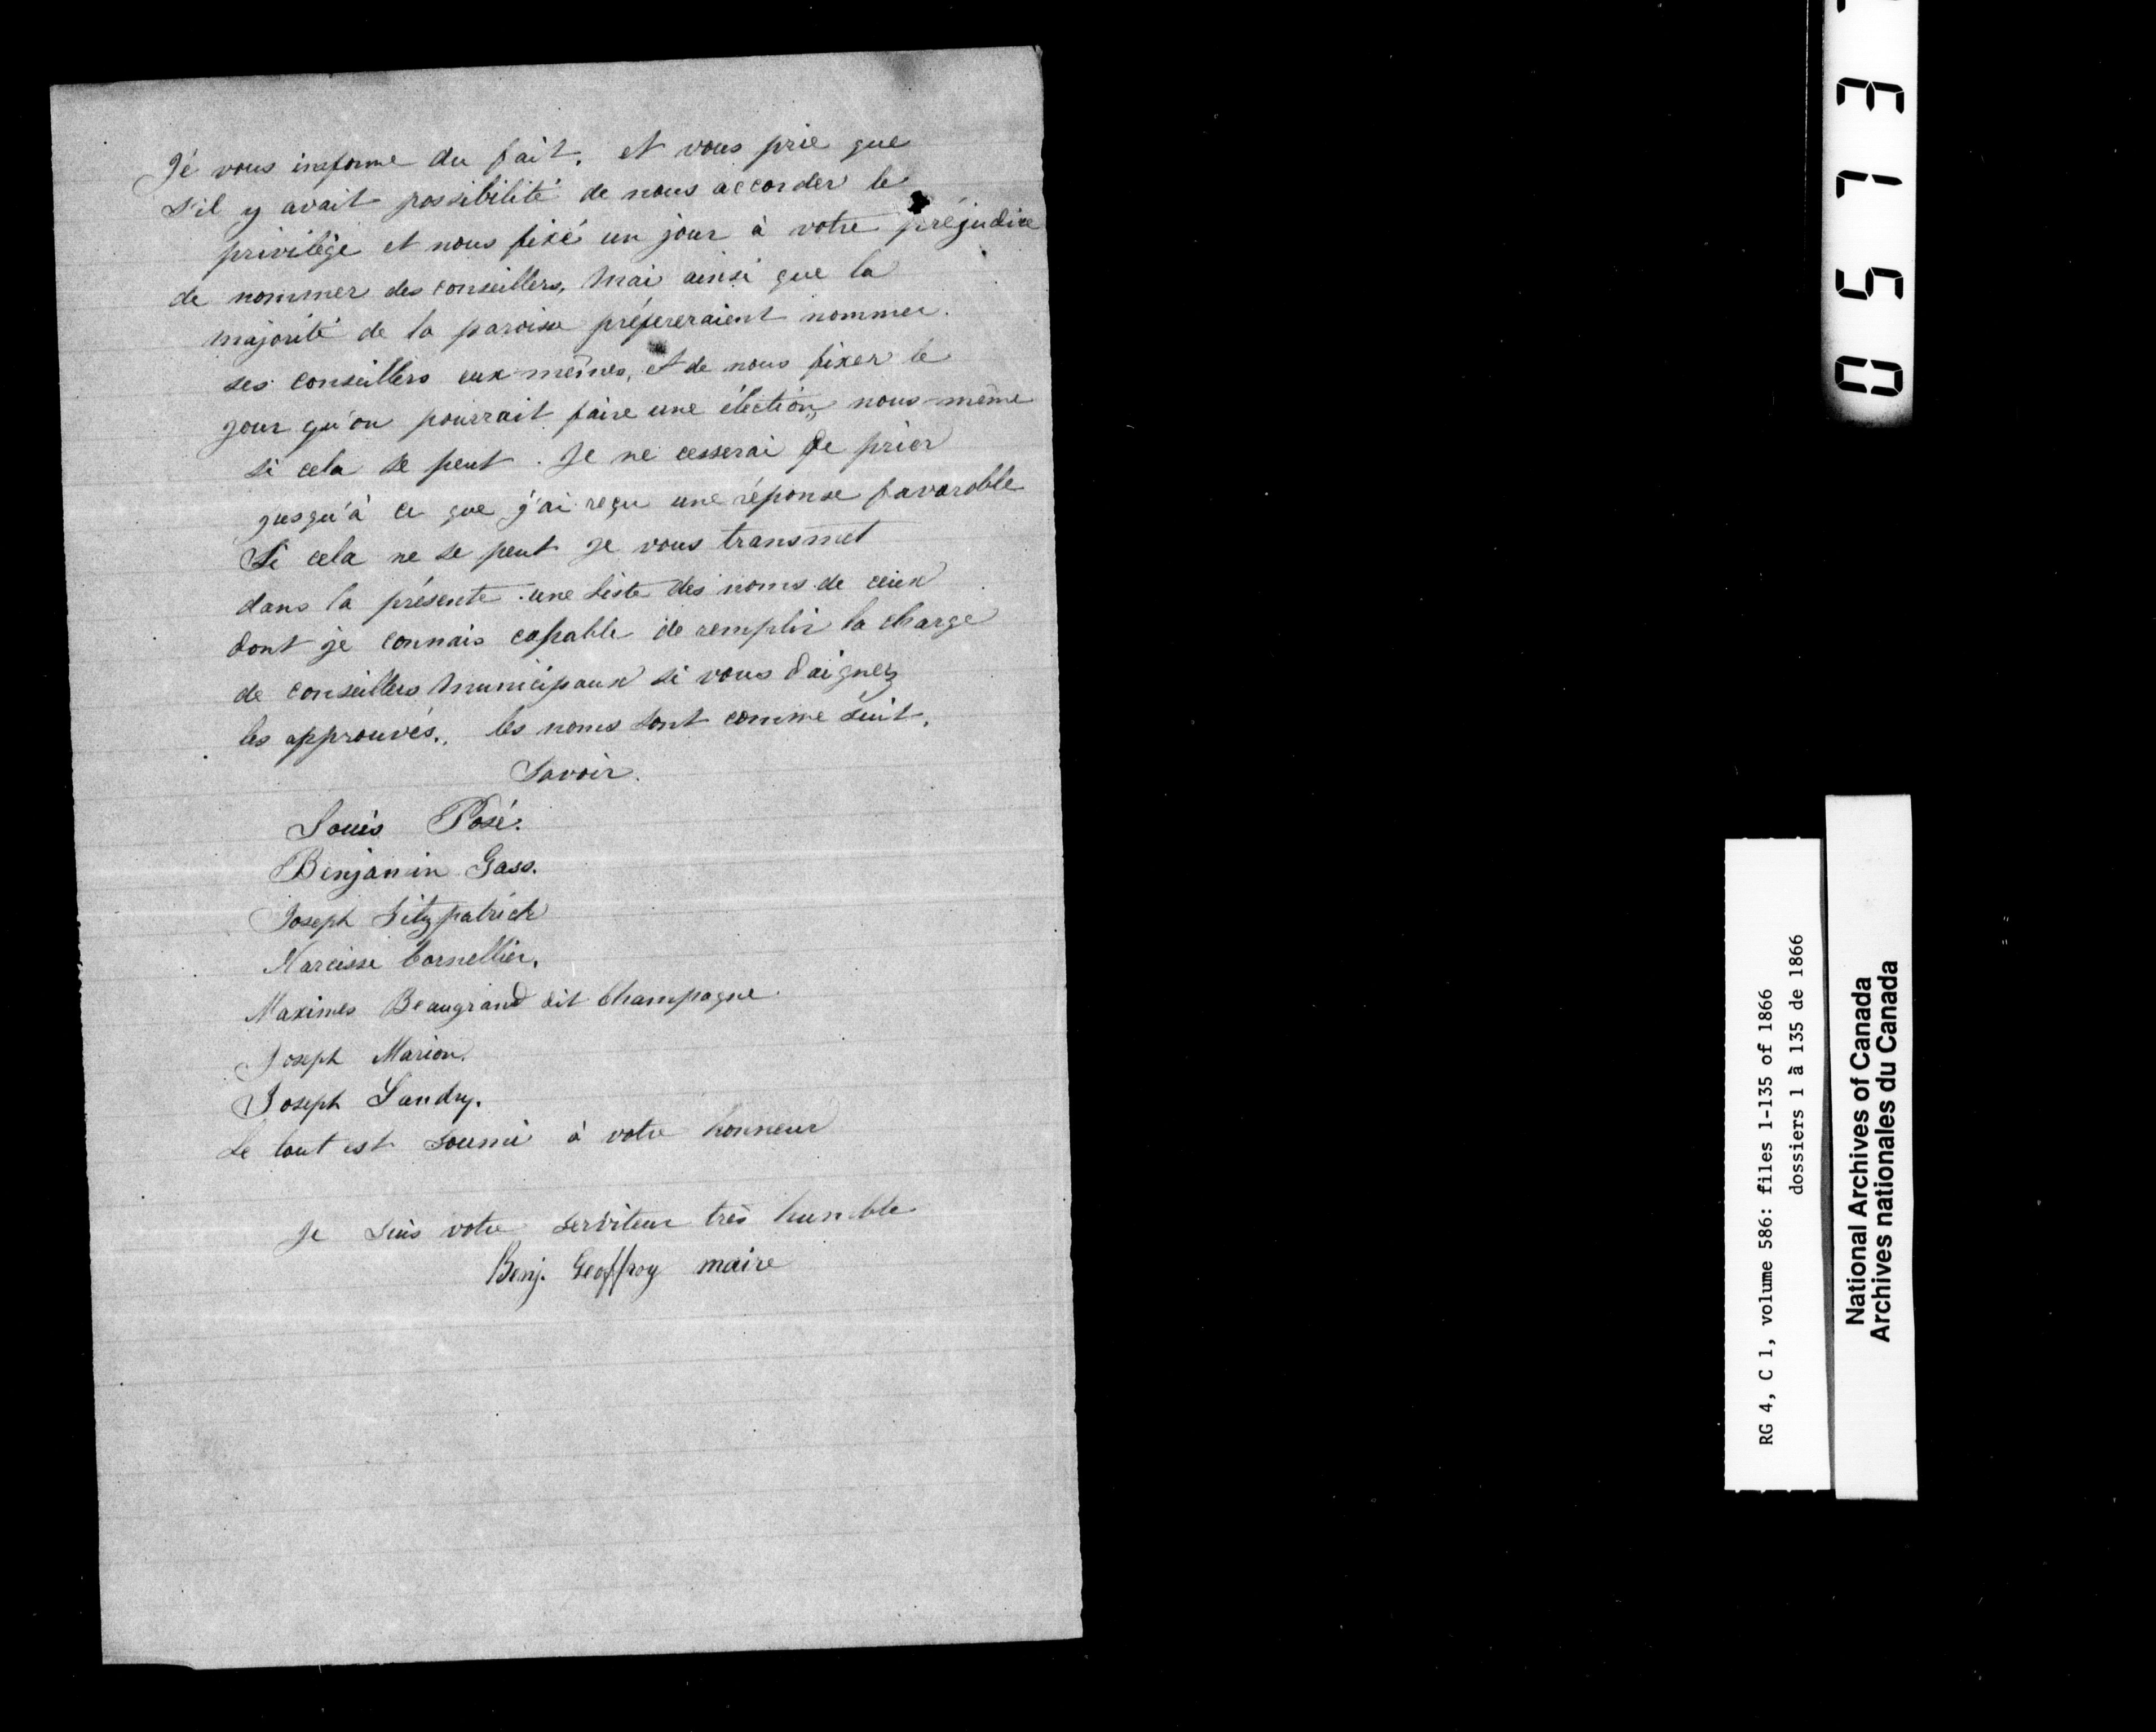 Je vous informe du fait, et vous prie que
s'il y avait possibilité de nous accorder le
privilège et nous fixé un jour à votre préjudice
de nommer des conseillers, mai ainsi que la
majorité de la paroisse préfereraient nommer.
ses conseillers eux-mêmes, et de nous fixer le
jour qu'on pourrait faire une élection, nous-même
si cela se peut. Je ne cesserai de prier
jusqu'à ce que j'ai reçu une réponse favorable
Si cela ne se peut je vous transmet
dans la présente une liste des noms de ceux
dont je connais capable de remplir la charge
de conseillers municipaux si vous daignez
les approuvés., les noms sont comme suit,
Savoir.
Louis
Benjamin Gass.
Joseph Fitzpatrick
Narcisse Cornellier,
Maximes Beaugrand dit Champagne
Joseph Marion.
Joseph Landry.
Le tout est soumi à votre honneur
Je suis votre serviteur très humble
Benj. Geoffroy maire
RG 4, C 1, volume 586: files 1-135 of 1866
dossiers 1 à 135 de 1866
National Archives of Canada
Archives nationales du Canada